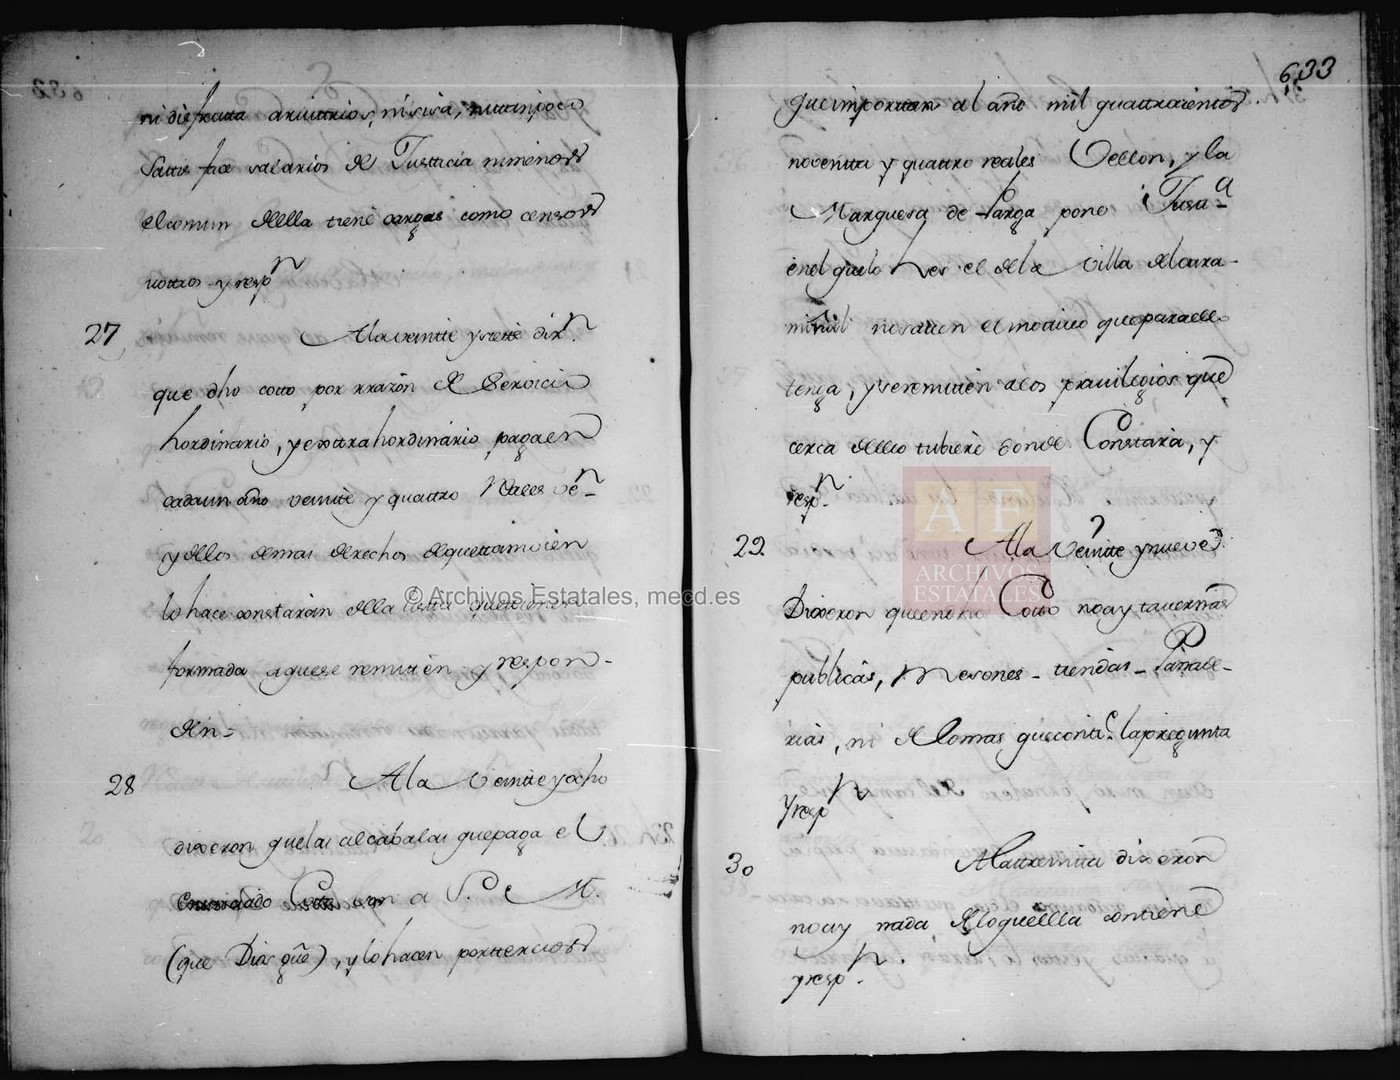 ni disfruta aruitrios, ni sisa, ni tampoco
Sattisface salarios de Justicia ni menos
el comun della tiene cargas como censos
uottros y resp.n
27 A la veintte y siette dix.n
que dho cotto por rrazon de Servicio
hordinario, y exttrahordinario pagaen
cadaun año veintte y quattro Reales ve.n
y de los demas derechos de que ttamvien
lo hace constaràn de la lista que tienen
formada a que se remitten y respon-
den=
28 A la veintte y ocho
dixeron que las alcabalas que paga el
Cotto son a S. M.
(que Dios gûe), y lo hacen por tterzios
633
que importtan al año mil quattrocientos
noventta y quattro reales Vellon, y la
Marquesa de Parga pone Just.a
en el que lo es de la villa de Cara-
miñal no saven el motivo que para ello
tenga, y se remitten a los previlegios que
cerca dello tubiere donde Constarà, y
resp.n
29 A la Veintte y nueve
Dixeron que en dho Cotto no ay tavernas
publicas, Mesones - tiendas - Panade-
rias, ni de lo mas que conti.e la pregunta
Y resp.n
30 A la ttreintta dixeron
no ay nada de lo que ella contiene
y resp.n.
© Archivos Estatales, mecd.es
AF
ARCHIVOS
ESTATALES